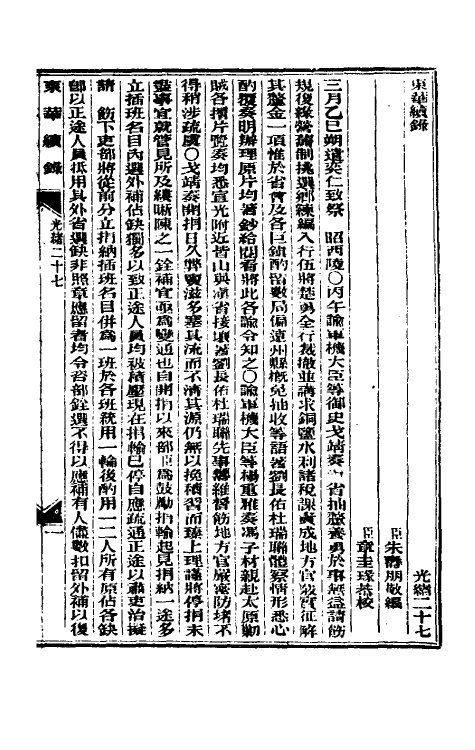 東華續錄
光緒二十七
臣朱壽朋敬編
臣章圭瑑恭校
三月乙巳朔遣奕仁致祭　昭西陵○丙午諭軍機大臣等御史戈靖奏　省抽釐養勇於事無益請飭
規復綠營舊制挑選鄉練編入行伍將楚勇全行裁撤並講求銅鹽水利諸稅課責成地方官覈實征解
其釐金一項惟於省會及各巨鎮酌留數局偏遠州縣概免抽收等語著劉長佑杜瑞聯體察情形悉心
酌覈奏明辦理原片均著鈔給閱看將此各諭令知之○諭軍機大臣等楊重雅奏馮子材親赴太原勦
賊各摺片覽奏均悉宣光附近皆山與滇省接壤著劉長佑杜瑞聯先事綢繆督飭地方官嚴密防堵不
得稍涉疏虞○戈靖奏開捐日久弊竇滋多塞其流而不清其源仍無以挽積習而臻上理謹將停捐未
盡事宜就管見所及縷晰陳之一銓補宜亟爲變通也自開捐以來部臣爲鼓勵捐輸起見捐納一途多
立插班名目內選外補佔缺獨多以致正途人員均被積壓現在捐輸已停自應疏通正途以肅吏治擬
請　飭下吏部將從前分立捐納插班名目併爲一班於各班統用一輪後酌用一二人所有原佔各缺
卽以正途人員抵用其外省選缺非照章應留者均令咨部銓選不得以應補有人儘數扣留外補以復
東華續錄
光緒二十七
一